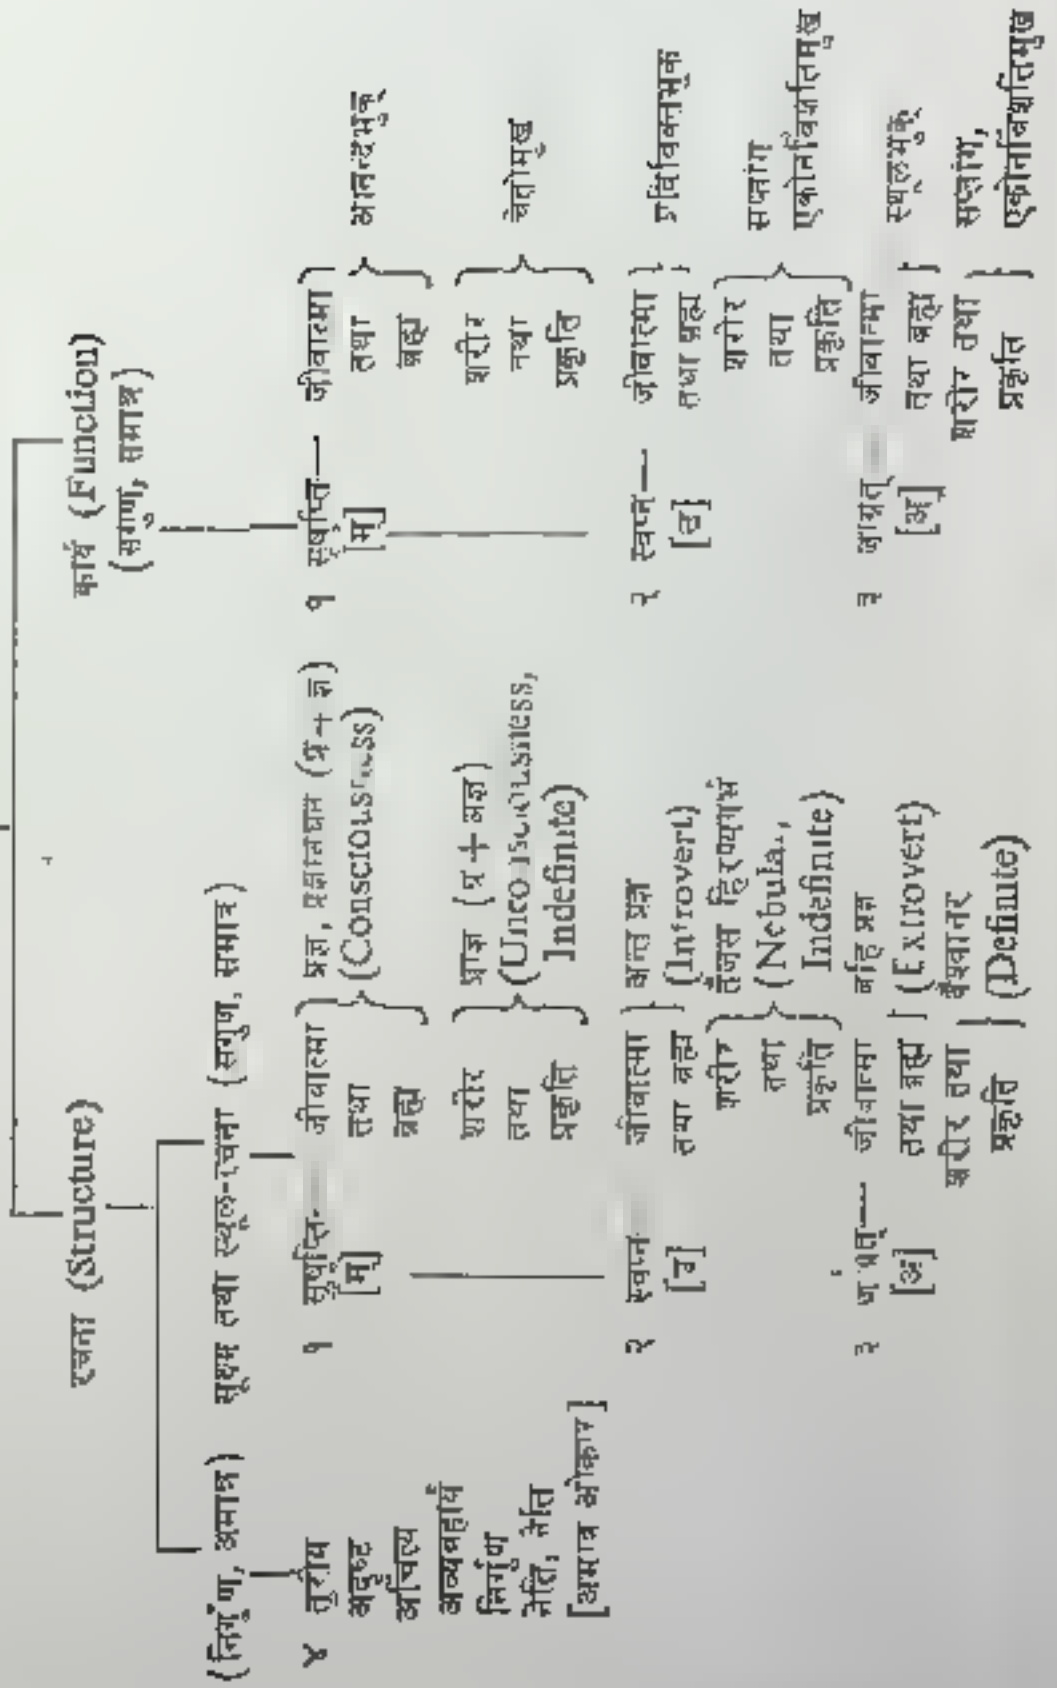 रचना (Structure)
कार्य (Function)
(सगुण, समात्र)
(निर्गुण, अमात्र)
सूक्ष्म तथा स्थूल-रचना (सगुण, समात्र)
४ तुरीय
अदृष्ट
अचिंत्य
अव्यवहार्य
निर्गुण
नेति, नेति
[अमात्र ओंकार]
१ सुषुप्ति—
[म्]
जीवात्मा
तथा
ब्रह्म
प्रज्ञ, प्रज्ञानघन (प्र + ज्ञ)
(Consciousness)
शरीर
तथा
प्रकृति
प्राज्ञ (प्र + अज्ञ)
(Unconsciousness,
Indefinite)
२ स्वप्न
[उ]
जीवात्मा
तथा ब्रह्म
अन्तःप्रज्ञ
(Introvert)
शरीर
तथा
प्रकृति
तैजस हिरण्यगर्भ
(Nebular,
Indefinite)
३ जाग्रत्—
[अ]
जीवात्मा
तथा ब्रह्म
बहिःप्रज्ञ
(Extrovert)
शरीर तथा
प्रकृति
वैश्वानर
(Definite)
१ सुषुप्ति—
[म्]
जीवात्मा
तथा
ब्रह्म
आनन्दभुक्
शरीर
तथा
प्रकृति
चेतोमुख
२ स्वप्न—
[उ]
जीवात्मा
तथा ब्रह्म
प्रविविक्तभुक्
शरीर
तथा
प्रकृति
सप्तांग
एकोनविंशतिमुख
३ जाग्रत्
[अ]
जीवात्मा
तथा ब्रह्म
स्थूलभुक्
शरीर तथा
प्रकृति
सप्तांग,
एकोनविंशतिमुख